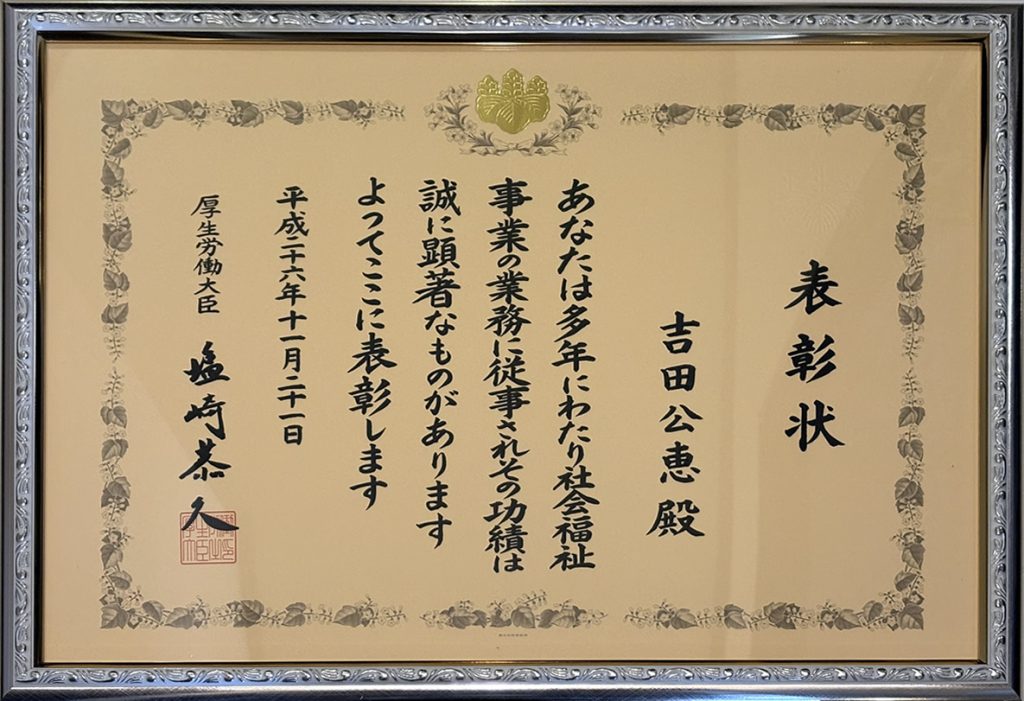 表彰状
吉田公恵殿
あなたは多年にわたり社会福祉
事業の業務に従事されその功績は
誠に顕著なものがあります
よってここに表彰します
平成二十六年十一月二十一日
厚生労働大臣 塩崎恭久